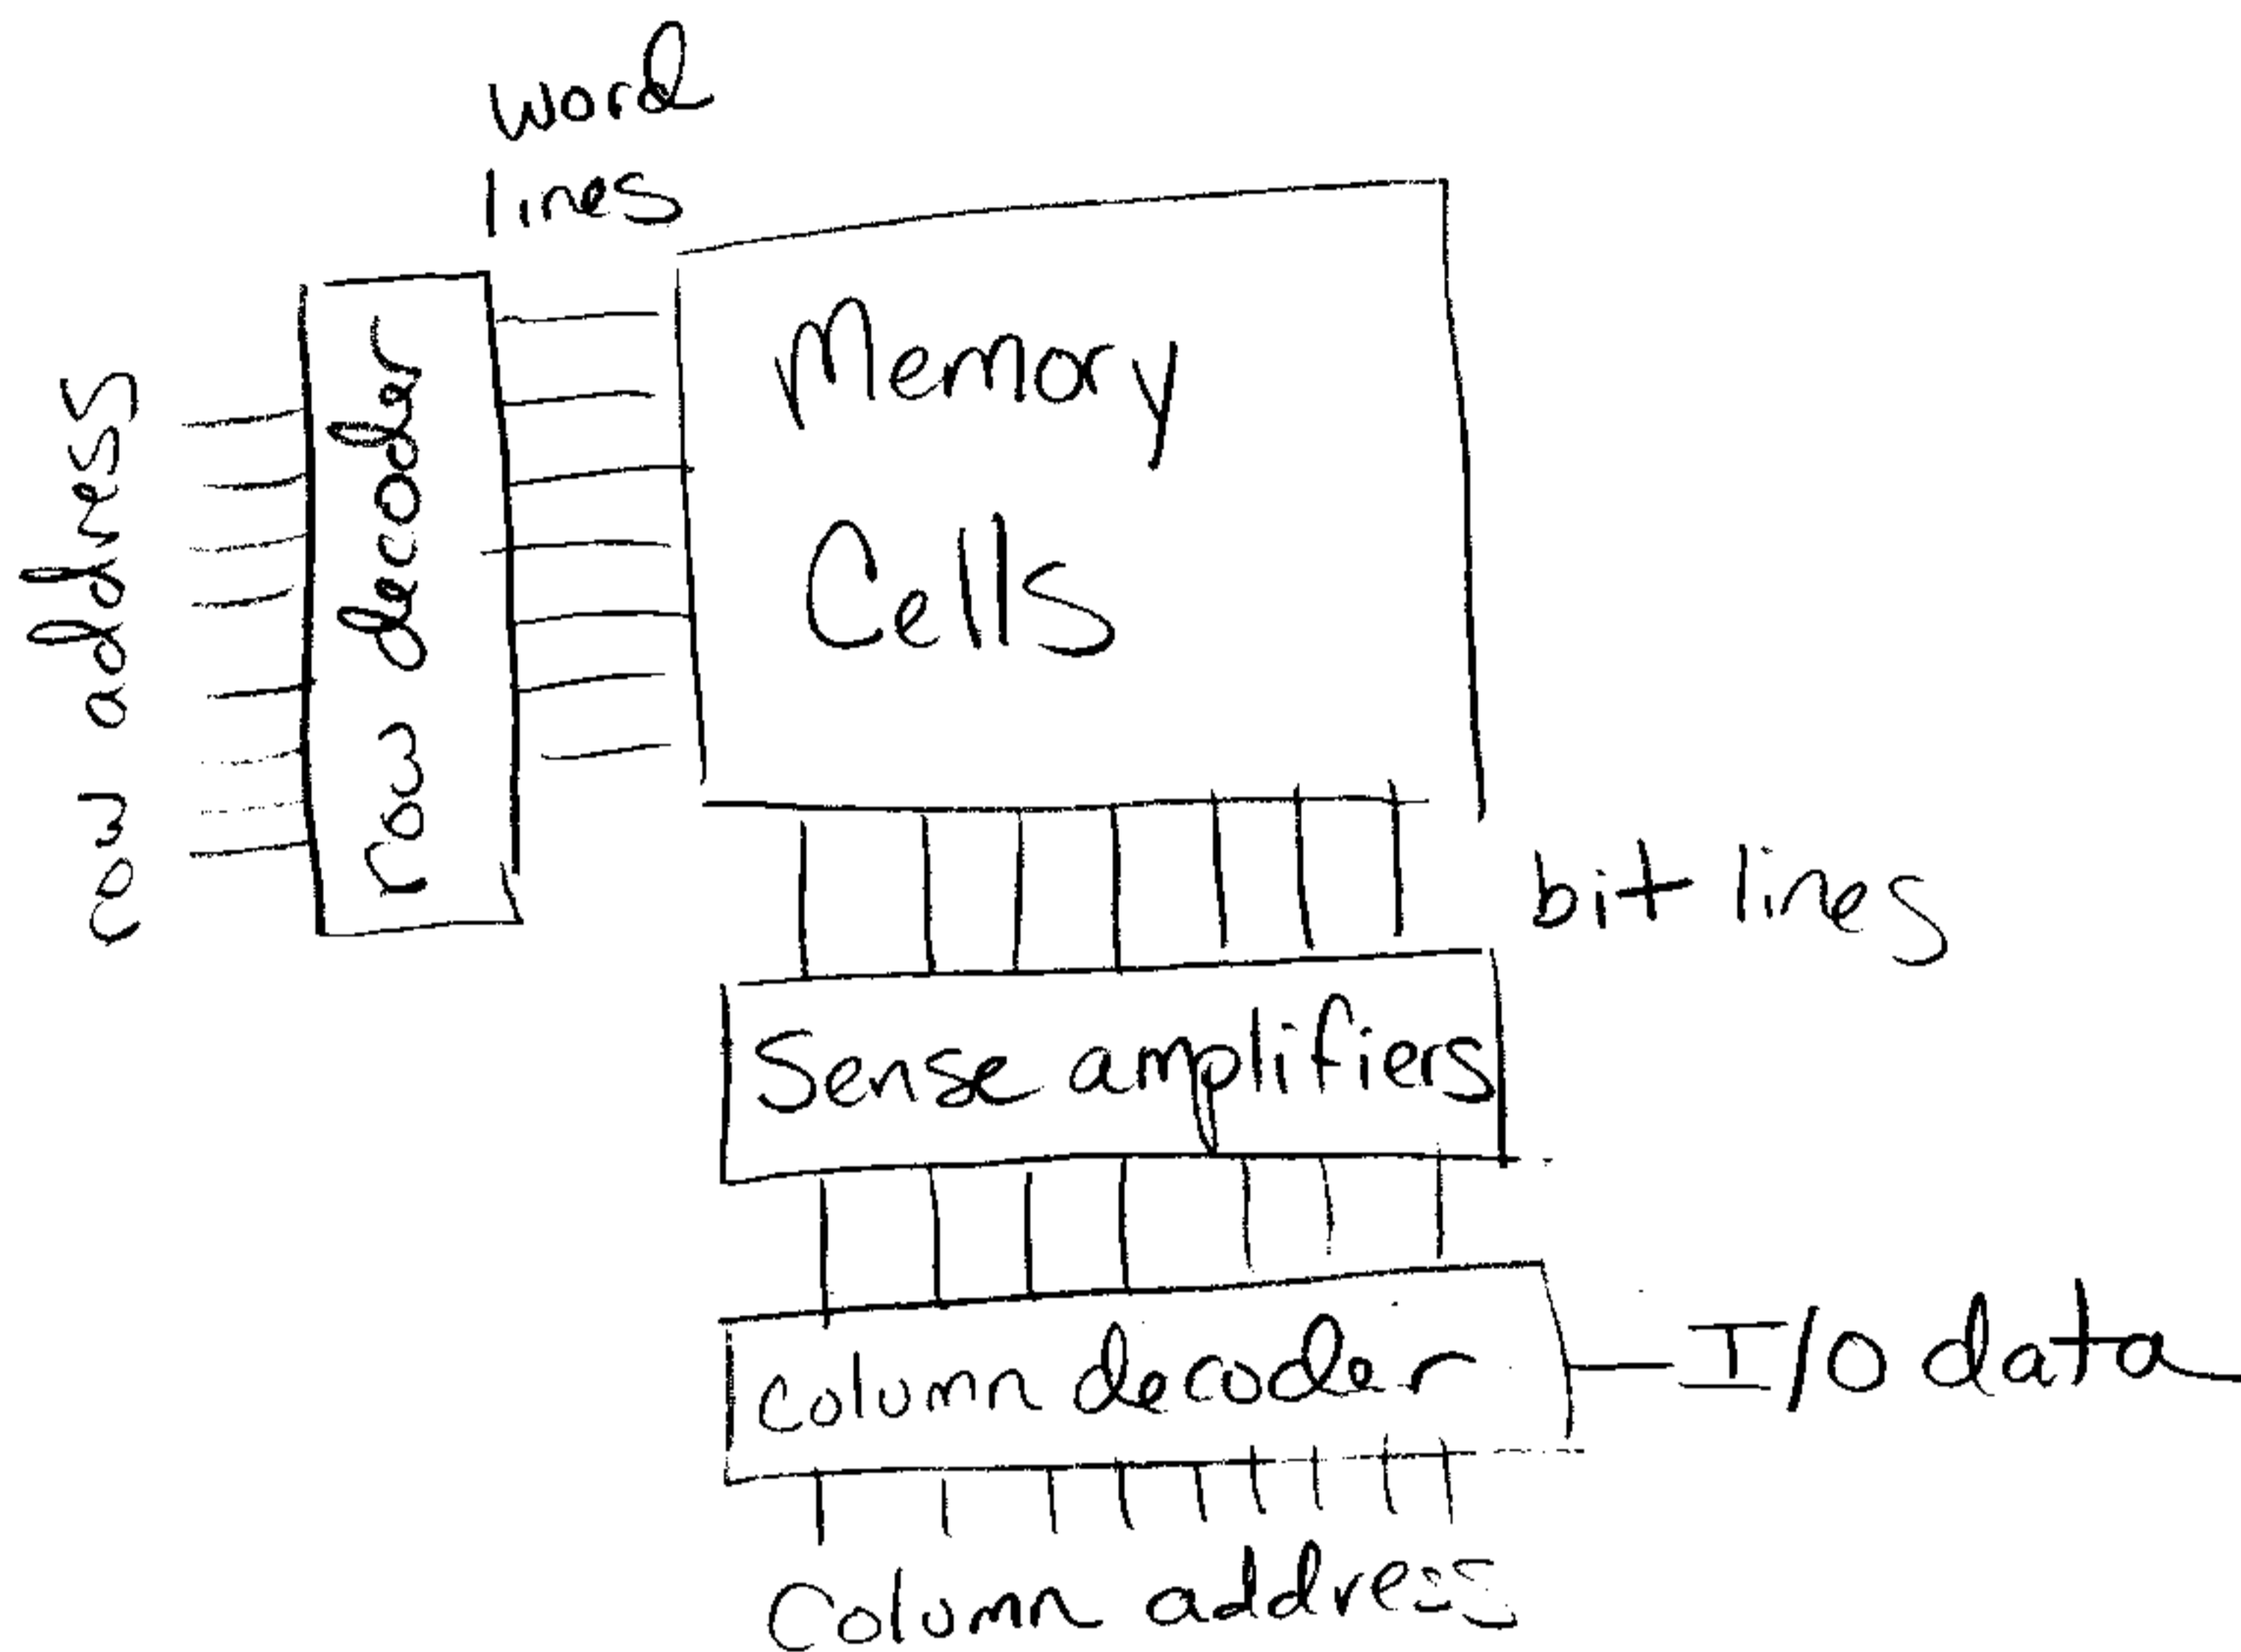 word
lines
row address
row decoder
Memory
Cells
bit lines
Sense amplifiers
column decoder
I/O data
Column address